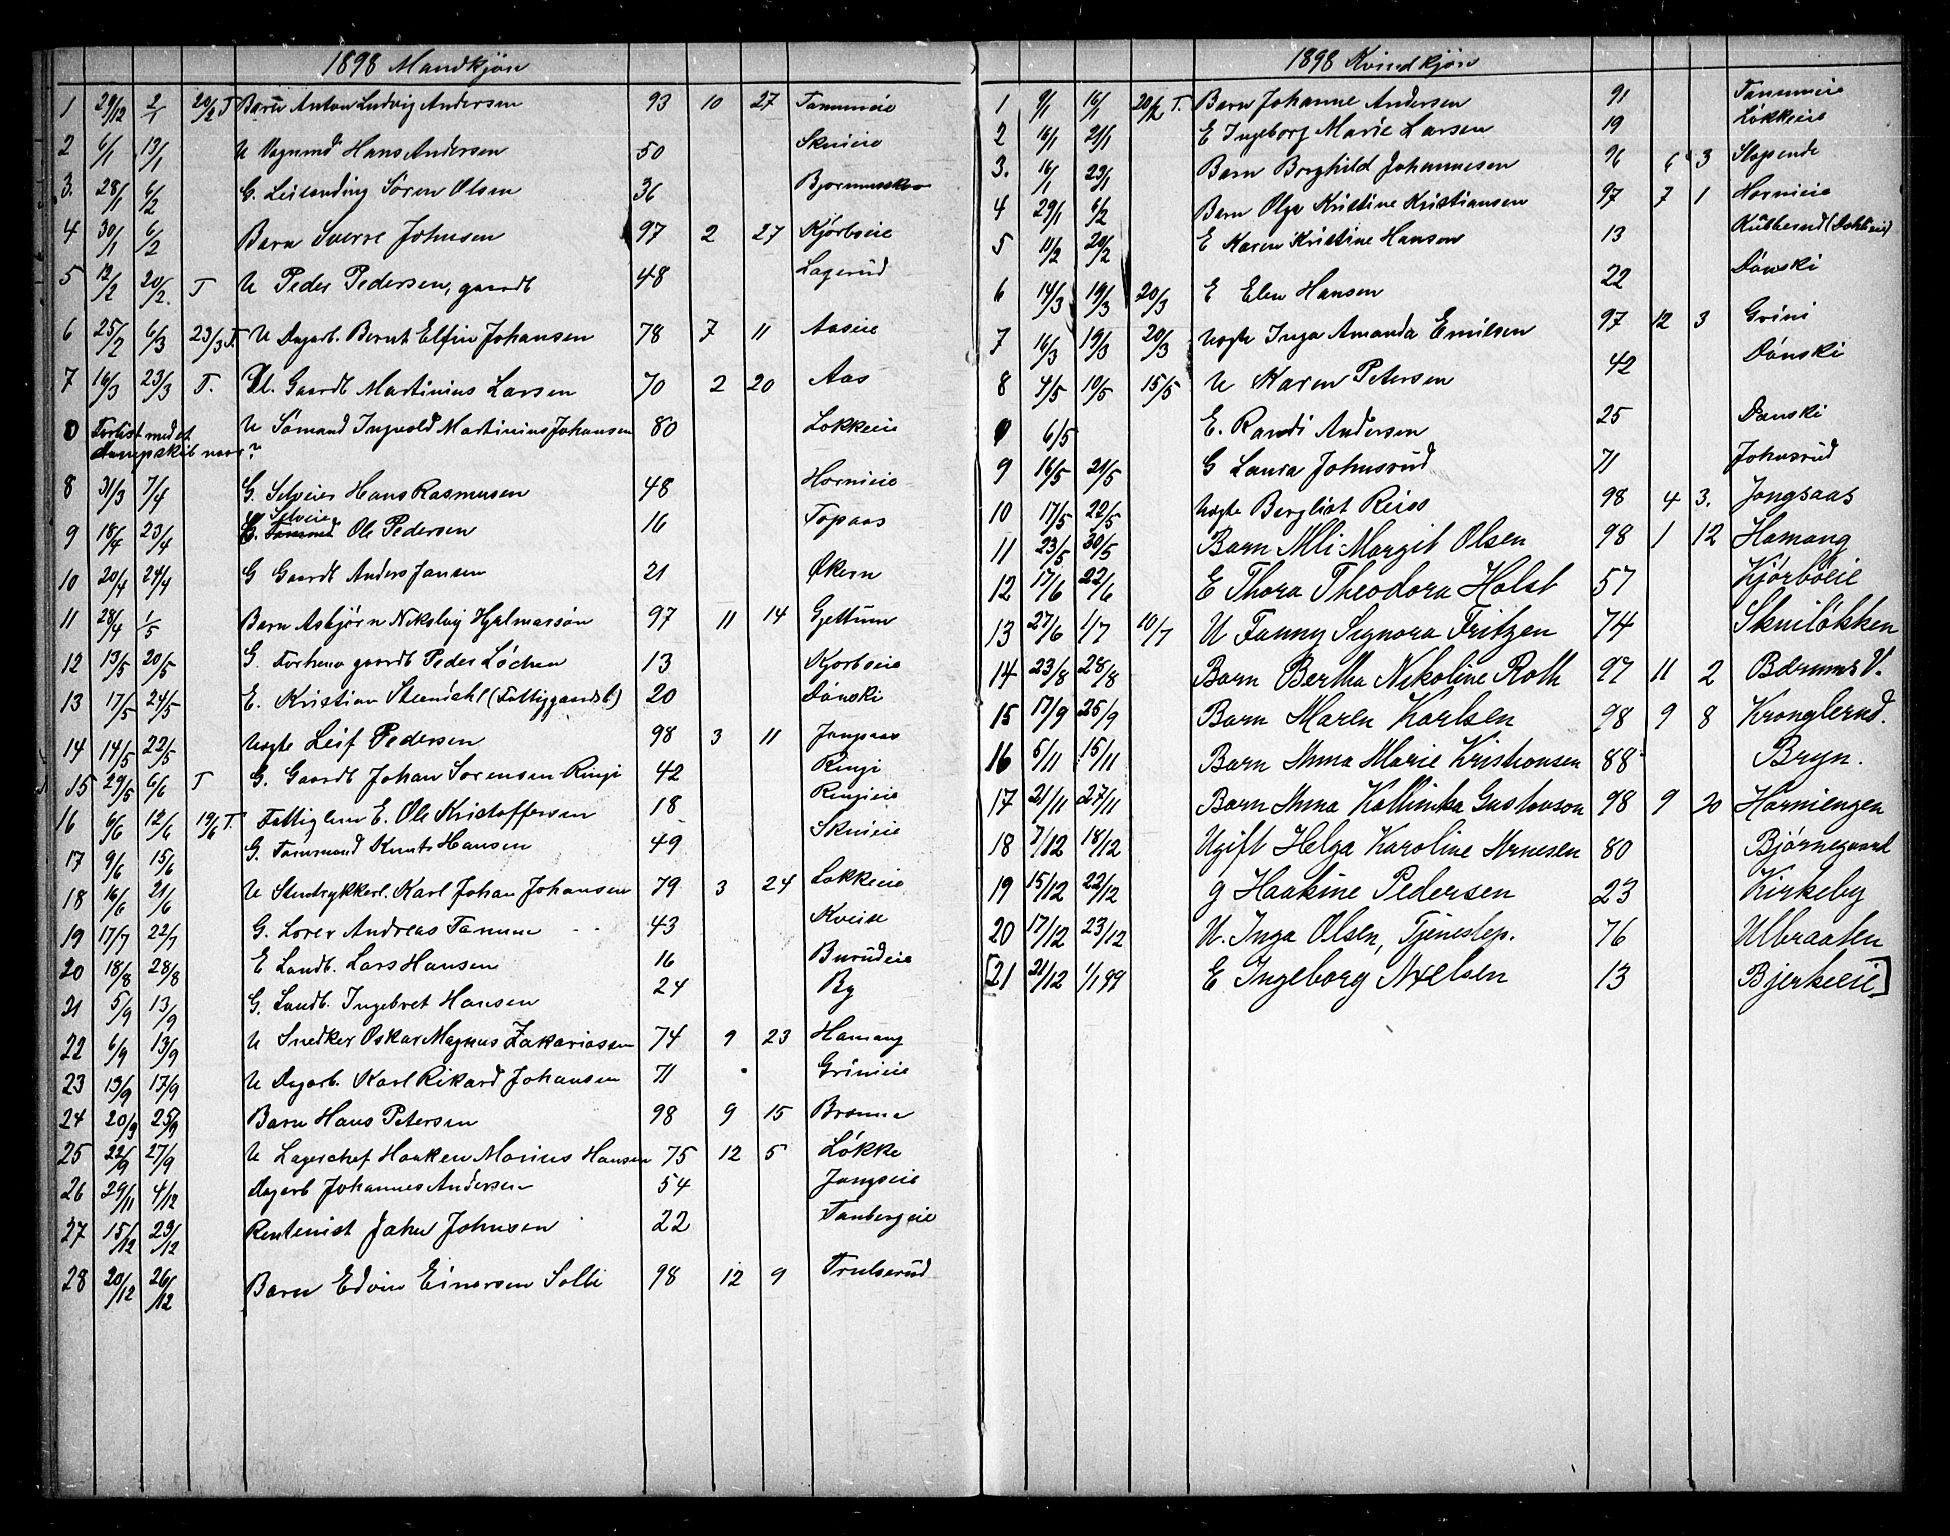 1898 Mandkjøn
1 29/12 2/1 20/2 T Barn Anton Ludvig Andersen 93 10 27 Tanumeie
2 6/1 13/1 U Vognmd Hans Andersen 50 Skuieie
3. 28/1 6/2 G. Leilending Søren Olsen 36
4 30/1 6/2 Barn Sverre Johnsen 97 2 27 Kjørboeie
5 12/2 20/2. T U Peder Pedersen, gaardb 48 Lagerud
6 25/2 6/3 23/3 T. U Dagarb. Bernt Elfin Johansen 78 7 11 Aaseie
7 16/3 23/3 T. U. Gaardb Martinius Larsen 70 2 20 Aas
0 Forlist med et U Sømand Ingvald Martinius Johansen 80 Løkkeie
dampskib naar?
8 31/3 7/4 G. Selveier Hans Rasmussen 48 Hornieie
Selveier
9 18/4 23/4 Ole Pedersen 16 Topaas
10 20/4 24/4 G Gaardb Anders Jansen 21 Økern
11 28/4 1/5 Barn Asbjørn Nikolay Hjalmarsøn 97 11 14 Gjettum
12 13/5 20/5 G. Forhenv gaardb Peder Løchen 13 Kjørboeie
13 17/5 24/5 E. Kristian Steendahl (Fattiggaardsb) 20 Dønski
14 14/5 22/5 uægte Leif Pedersen 98 3 11 Jongsaas
15 29/5 6/6 T G. Gaardb Johan Sørensen Ringi 42 Ringi
16 6/6 12/6 19/6 T. Fattiglem E. Ole Kristoffersen 18 Ringieie
17 9/6 15/6 G. Tømmermand Knut Hansen 49 Skuieie
18 16/6 21/6 U Stentrykkerl. Karl Johan Johansen 79 3 24 Løkkeie
19 17/7 22/7 G. Lærer Andreas Tanum 43 Kveise
20 18/8 28/8 E Landb. Lars Hansen 16 Burudeie
21 5/9 13/9 G. Landb. Ingebret Hansen 24 By
22 6/9 13/9 U Snedker Oskar Magnus Zakariassen 74 9 23 Hamang
23 13/9 17/9 U Dagarb. Karl Rikard Johansen 71 Grinieie
24 20/9 25/9 Barn Hans Petersen 98 9 15 Brønna
25 22/9 27/9 U Lagerchef Haaken Marius Hansen 75 12 5 Løkke
26 29/11 4/12 Dagarb Johannes Andersen 54 Jongseie
27 15/12 23/12 Rentenist John Johnsen 22 Tanbergeie
28 20/12 26/12 Barn Edvin Einarsen Solli 98 12 9 Trulserud
1898 Kvindkjøn
1 9/1 16/1 20/2 T. Barn Johanne Andersen 91 Tanumeie
2 16/1 21/1 E Ingeborg Marie Larsen 19 Løkkeie
3. 16/1 23/1 Barn Borghild Johannesen 96 6 3 Slependen
4 29/1 6/2 Barn Olga Kristine Kristiansen 97 7 1 Hornieie
5 11/2 20/2 E Karen Kristine Hansen 13
6 14/3 19/3 20/3 E Elen Hansen 22 Dønski
7 16/3 19/3 20/3 uægte Inga Amanda Emilsen 97 12 3 Grini
8 4/5 10/5 15/5 U Karen Petersen 42 Dønski
0 6/5 E. Randi Andersen 25 Dønski
9 16/5 21/5 G Laura Johnsrud 71 Johnsrud
10 17/5 22/5 uægte Bergliot Reiss 98 4 3. Jongsaas
11 23/5 30/5 Barn Alli Margit Olsen 98 1 12 Hamang
12 17/6 22/6 E Thora Theodora Holst 57 Kjørboeie
13 27/6 1/7 10/7 U Fanny Signora Fritzen 74 Skuiløkken
14 23/8 28/8 Barn Bertha Nikoline Roth 97 11 2 Bærums V.
15 17/9 25/9 Barn Maren Karlsen 98 9 8 Kronglerud.
16 5/11 15/11 Barn Anna Marie Kristiansen 88 Bryn.
17 21/11 27/11 Barn Anna Kathinka Gustavson 98 9 20 Horniengen
18 7/12 18/12 Ugift Helga Karoline Arnesen 80 Bjørnegaard
19 15/12 22/12 g Haakine Pedersen 23 Kirkeby
20 17/12 23/12 U. Inga Olsen, Tjenestep. 76 Ulbraaten
[21 21/12 1/1 99 E Ingeborg Nielsen 13 Bjerkeeie]